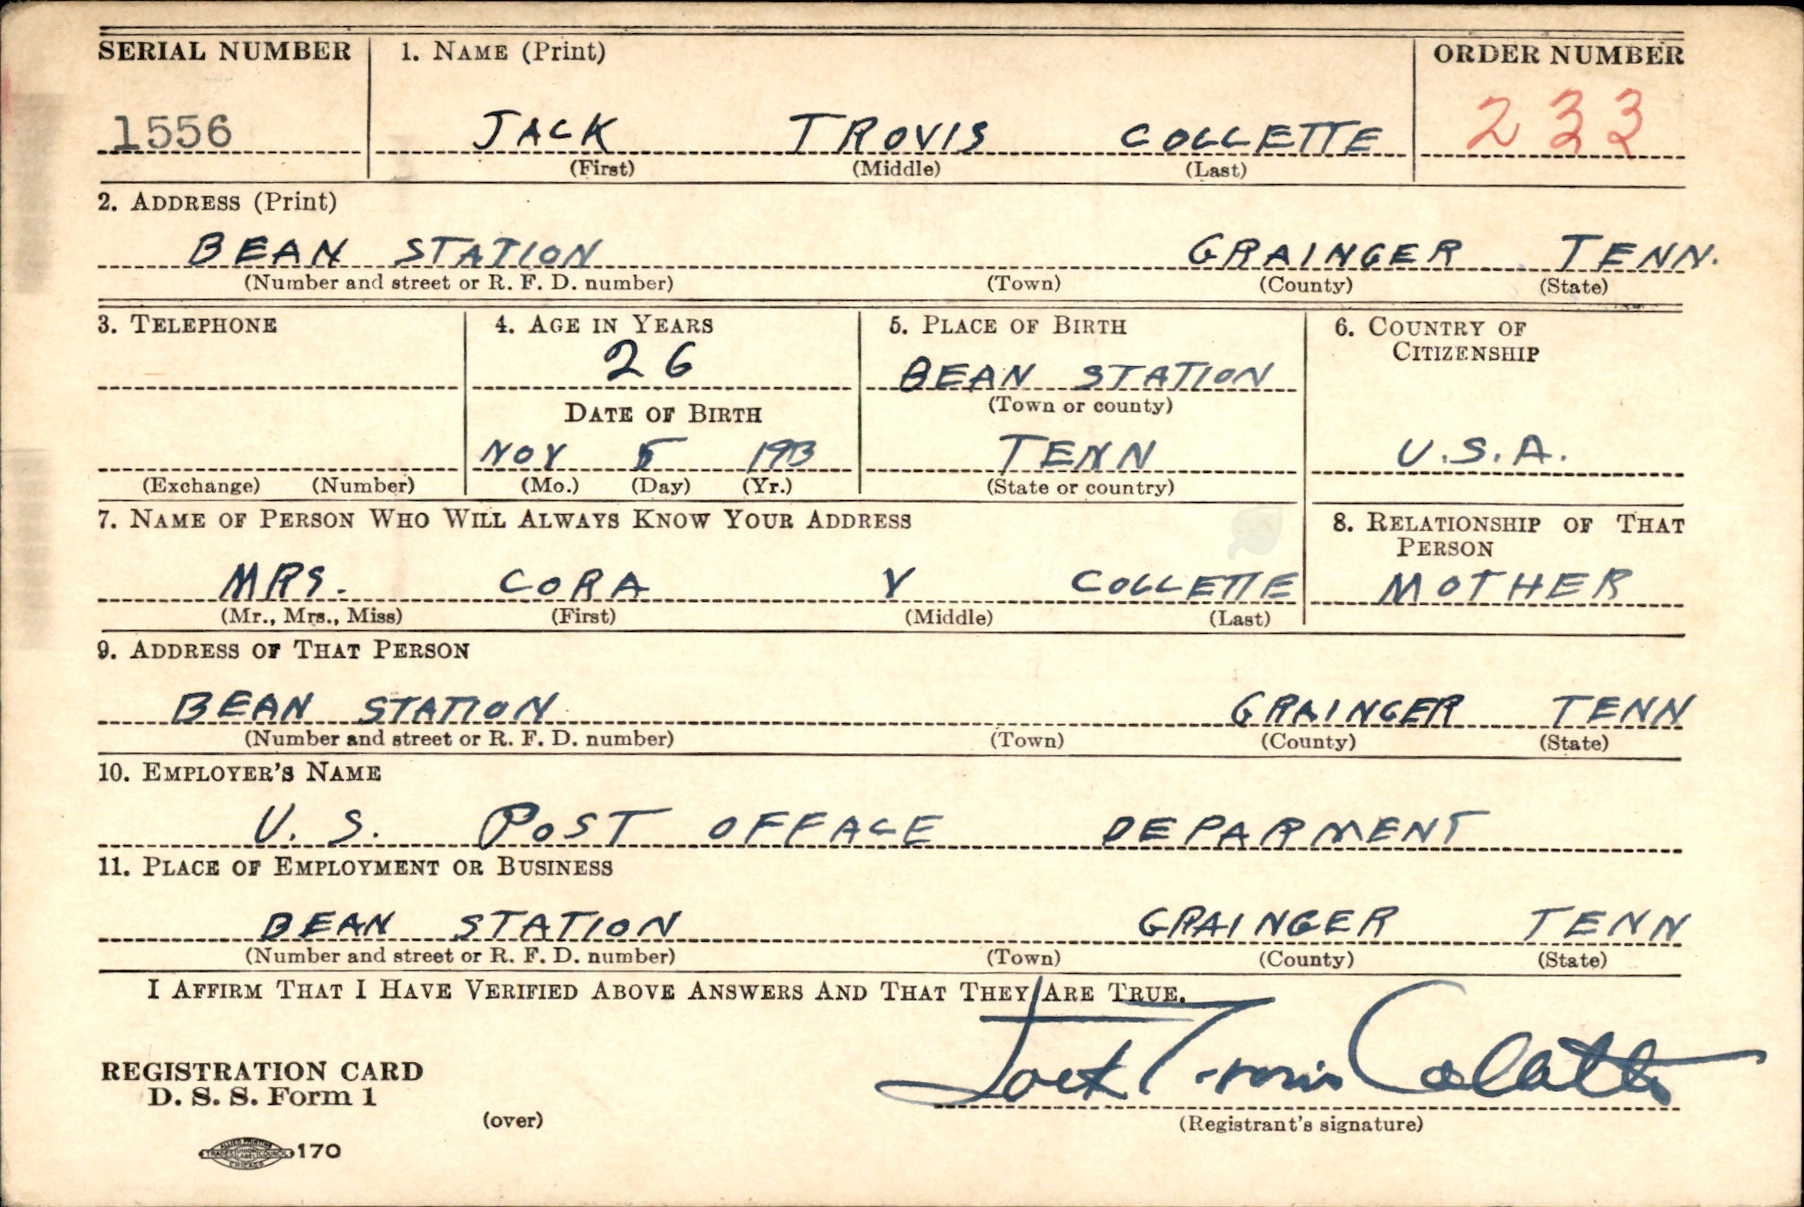 SERIAL NUMBER 1. NAME (Print) ORDER NUMBER
1556 JACK TROVIS COLLETTE 233
(First) (Middle) (Last)
2. ADDRESS (Print)
BEAN STATION GRAINGER TENN.
(Number and street or R. F. D. number) (Town) (County) (State)
3. TELEPHONE 4. AGE IN YEARS 5. PLACE OF BIRTH 6. COUNTRY OF CITIZENSHIP
26 BEAN STATION
DATE OF BIRTH (Town or county)
NOV 5 1913 TENN U.S.A.
(Exchange) (Number) (Mo.) (Day) (Yr.) (State or country)
7. NAME OF PERSON WHO WILL ALWAYS KNOW YOUR ADDRESS 8. RELATIONSHIP OF THAT PERSON
MRS. CORA V COLLETTE MOTHER
(Mr., Mrs., Miss) (First) (Middle) (Last)
9. ADDRESS OF THAT PERSON
BEAN STATION GRAINGER TENN
(Number and street or R. F. D. number) (Town) (County) (State)
10. EMPLOYER'S NAME
U. S. POST OFFACE DEPARMENT
11. PLACE OF EMPLOYMENT OR BUSINESS
BEAN STATION GRAINGER TENN
(Number and street or R. F. D. number) (Town) (County) (State)
I AFFIRM THAT I HAVE VERIFIED ABOVE ANSWERS AND THAT THEY ARE TRUE.
Jack Trovis Collette
REGISTRATION CARD
D. S. S. Form 1
(over) (Registrant's signature)
170